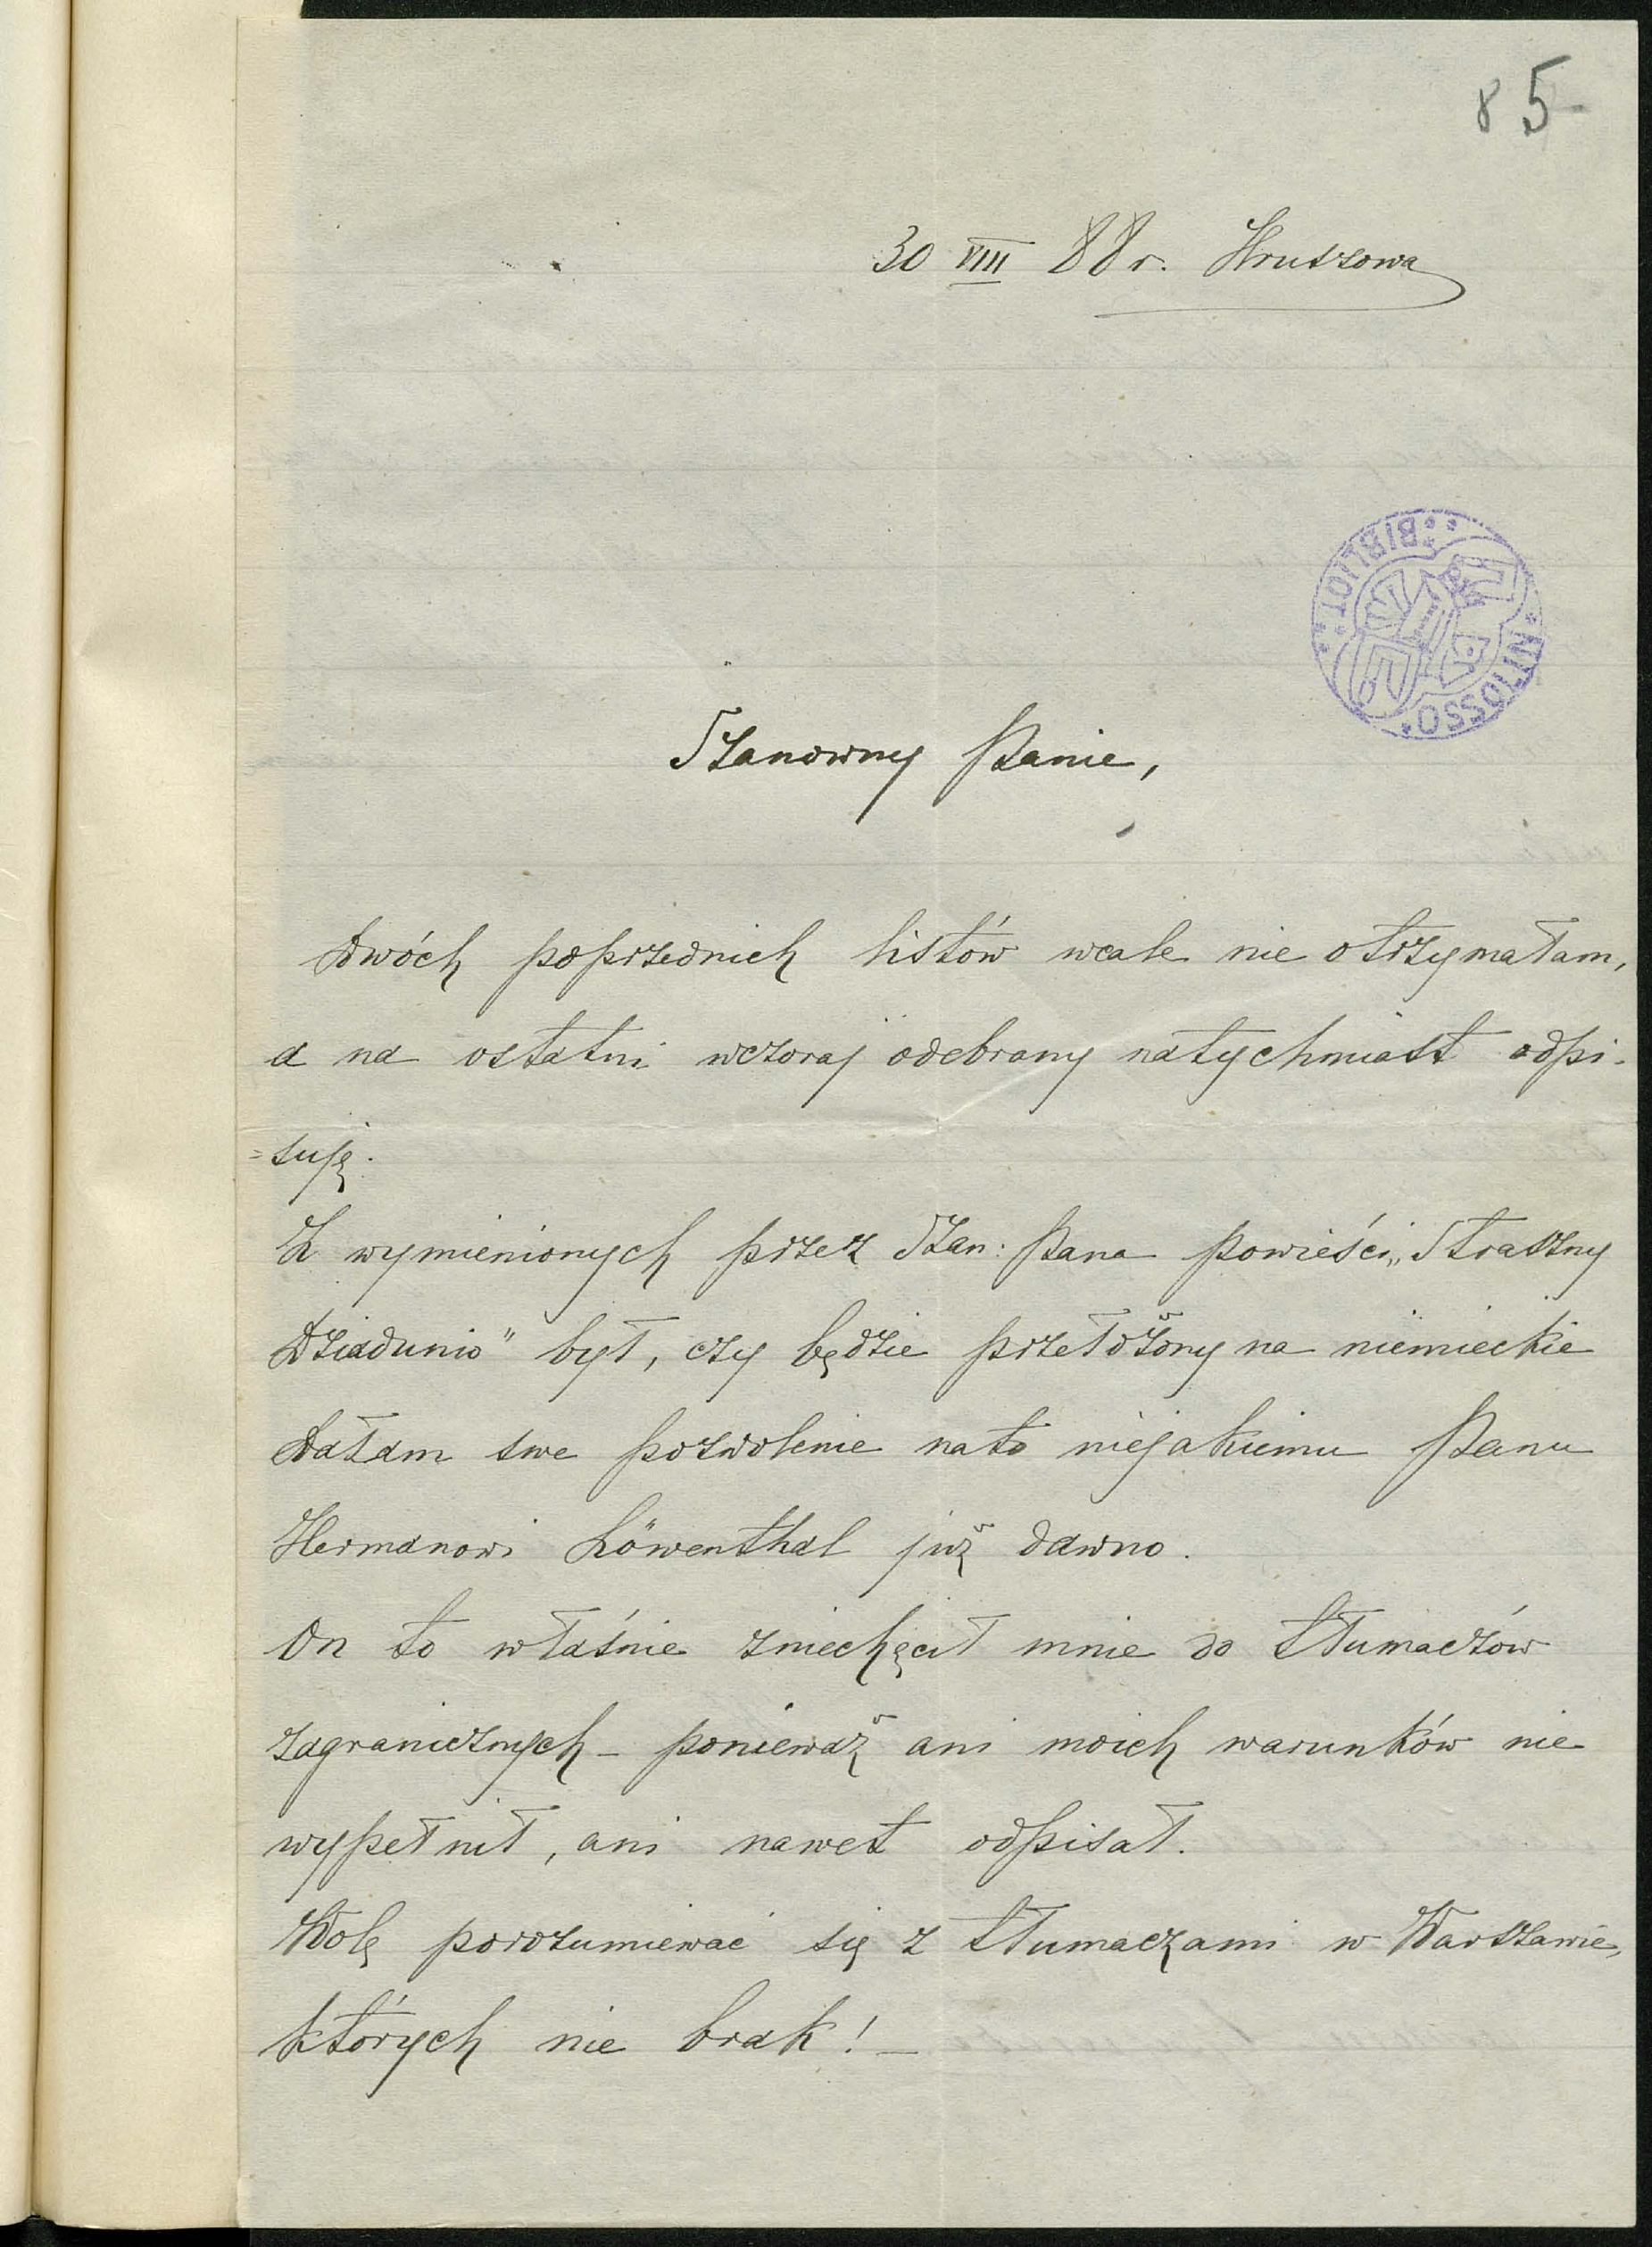 85
30 VIII 88 r. Hruszowa
BIBLIOT
OSSOLIN
Szanowny Panie,
Dwóch poprzednich listów wcale nie otrzymałam,
a na ostatni wczoraj odebrany natychmiast odpi-
=suję.
Z wymienionych przez Szan: Pana powieści „Straszny
Dziadunio" był, czy będzie przełożony na niemieckie
Dałam swe pozwolenie na to niejakiemu Panu
Hermanowi Löwenthal już dawno.
On to właśnie zniechęcił mnie do tłumaczów
zagranicznych – ponieważ ani moich warunków nie
wypełnił, ani nawet odpisał.
Wolę porozumiewać się z tłumaczami w Warszawie,
których nie brak! –